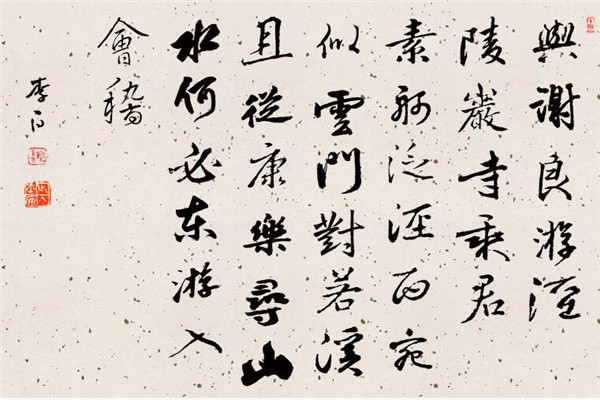 與謝良游涇
陵巖寺乘君
素舸泛涇西宛
似雲門對若溪
且從康樂尋山
水何必東游入
會稽
李白